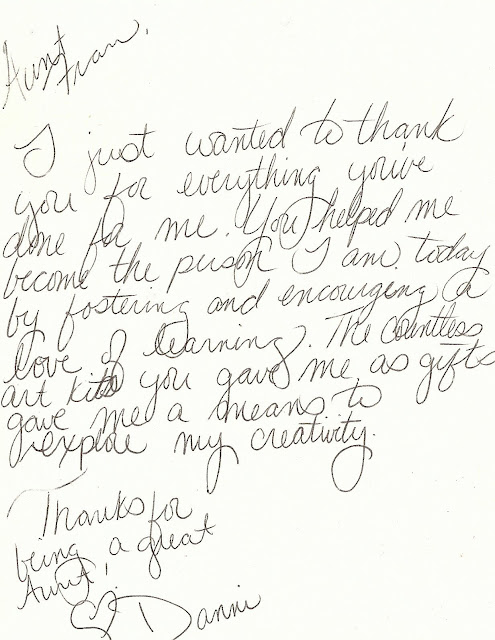 Aunt
Fran,
I just wanted to thank
you for everything you've
done for me. You helped me
become the person I am today
by fostering and encourging a
love of learning. The countless
art kits you gave me as gifts
gave me a means to
explore my creativity.
Thanks for
being a great
Aunt!
Danni